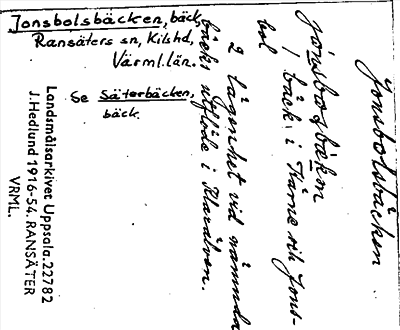 Jonsbolsbäcken, bäck,
Ransäters sn, Kils hd,
Värml. län.
Se Säterbäcken,
bäck.
Landsmålsarkivet Uppsala. 22782
J. Hedlund 1916-54. RANSÄTER
VRML.
Jonsbolsbäcken
1 bäck i Tärne och Jons-
bol
2 lägenhet vid nämnda
bäcks utflöde i Klarälven.